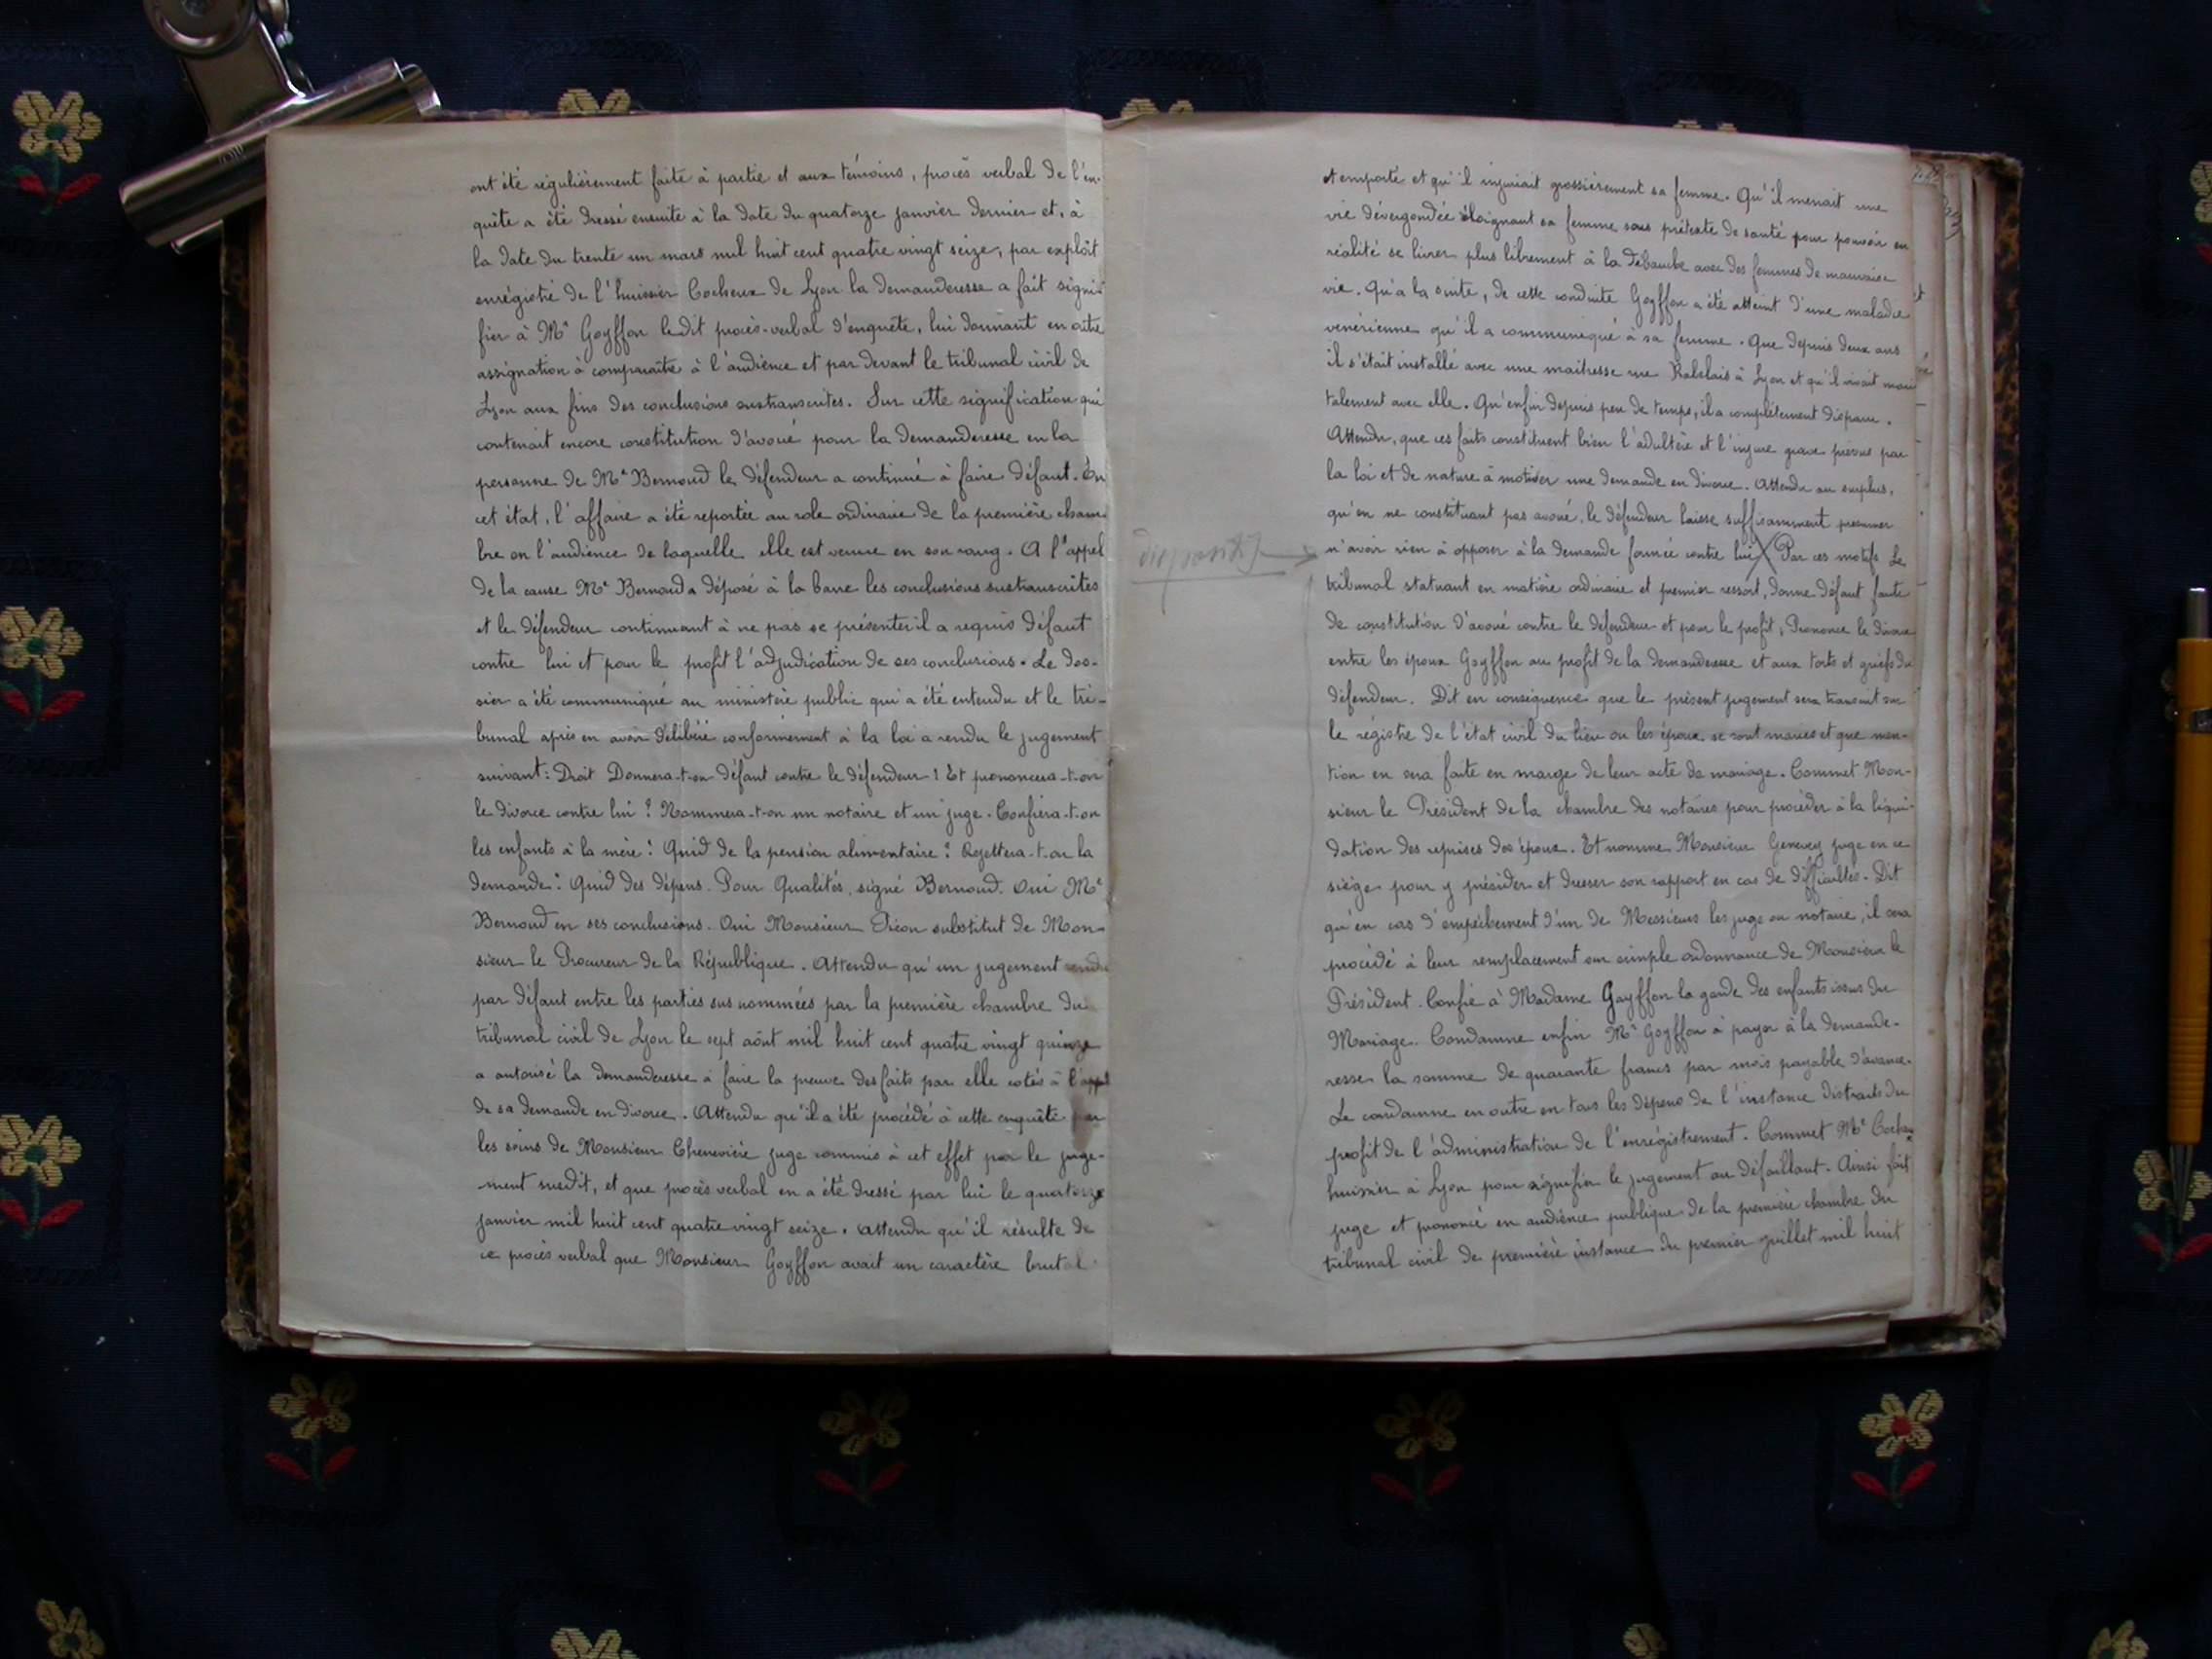 ont été régulièrement faite à partie et aux témoins, procès verbal de l'en-
quête a été dressé ensuite à la date du quatorze janvier dernier et, à
la date du trente un mars mil huit cent quatre vingt seize, par exploit
enrégistré de l'huissier Cocheux de Lyon la demanderesse a fait signi-
fier à Mr Goyffon ledit procès-verbal d'enquête, lui donnant en outre
assignation à comparaitre à l'audience et par devant le tribunal civil de
Lyon aux fins des conclusions sustranscrites. Sur cette signification qui
contenait encore constitution d'avoué pour la demanderesse en la
personne de Me Bernoud le défendeur a continué à faire défaut. En
cet état, l'affaire a été reportée au role ordinaire de la première cham-
bre on l'audience de laquelle elle est venue en son rang. A l'appel
de la cause Me Bernoud a déposé à la barre les conclusions sustranscrites
et le défendeur continuant à ne pas se présenter il a requis défaut
contre lui et pour le profit l'adjudication de ses conclusions. Le dos-
sier a été communiqué au ministère public qui a été entendu et le tri-
bunal après en avoir délibéré conformément à la loi a rendu le jugement
suivant: Droit Donnera-t-on défaut contre le défendeur? Et prononcera-t-on
le divorce contre lui? Nommera-t-on un notaire et un juge. Confiera-t-on
les enfants à la mère? Quid de la pension alimentaire? Rejettera-t-on la
demande? Quid des dépens. Pour Qualités, signé Bernoud. Oui Me
Bernoud en ses conclusions. Oui Monsieur substitut de Mon-
sieur le Procureur de la République. Attendu qu'un jugement rendu
par défaut entre les parties sus nommées par la première chambre du
tribunal civil de Lyon le sept août mil huit cent quatre vingt quinze
a autorisé la demanderesse à faire la preuve des faits par elle cotés à l'appui
de sa demande en divorce. Attendu qu'il a été procédé à cette enquête par
les soins de Monsieur Chenevière juge commis à cet effet par le juge-
ment susdit, et que procès verbal en a été dressé par lui le quatorze
janvier mil huit cent quatre vingt seize. Attendu qu'il résulte de
ce procès verbal que Monsieur Goyffon avait un caractère brutal
et emporté et qu'il injuriait grossièrement sa femme. Qu'il menait une
vie dévergondée éloignant sa femme sous prétexte de santé pour pouvoir en
réalité se livrer plus librement à la débauche avec des femmes de mauvaise
vie. Qu'a la suite, de cette conduite Goyffon a été atteint d'une maladie
venérienne qu'il a communiqué à sa femme. Que depuis deux ans
il s'était installé avec une maitresse rue Rabelais à Lyon et qu'il vivait mari
talement avec elle. Qu'enfin depuis peu de temps, il a complétement disparu.
Attendu, que ces faits constituent bien l'adultère et l'injure grave prévus par
la loi et de nature à motiver une demande en divorce. Attendu au surplus,
qu'en ne constituant pas avoué, le défendeur laisse suffisamment presumer
dispositif → n'avoir rien à opposer à la demande formée contre lui X Par ces motifs Le
tribunal statuant en matière ordinaire et premier ressort, donne défaut faute
de constitution d'avoué contre le défendeur et pour le profit, Prononce le divorce
entre les époux Goyffon au profit de la demanderesse et aux torts et griefs du
défendeur. Dit en conséquence que le présent jugement sera transcrit sur
le régistre de l'état civil du lieu ou les époux se sont mariés et que men-
tion en sera faite en marge de leur acte de mariage. Commet Mon-
sieur le Président de la chambre des notaires pour procéder à la liqui-
dation des reprises des époux. Et nomme Monsieur Genevey juge en ce
siège pour y présider et dresser son rapport en cas de difficultés. Dit
qu'en cas d'empêchement d'un de Messieurs les juge ou notaire, il sera
procédé à leur remplacement sur simple ordonnance de Monsieur le
Président. Confie à Madame Goyffon la garde des enfants issus du
Mariage. Condamne enfin Mr Goyffon à payer à la demande-
resse la somme de quarante francs par mois payable d'avance.
Le condamne en outre en tous les dépens de l'instance distraits du
profit de l'administration de l'enrégistrement. Commet Me Cocheux
huissier à Lyon pour signifier le jugement au défaillant. Ainsi fait
juge et prononcé en audience publique de la première chambre du
tribunal civil de première instance du premier juillet mil huit